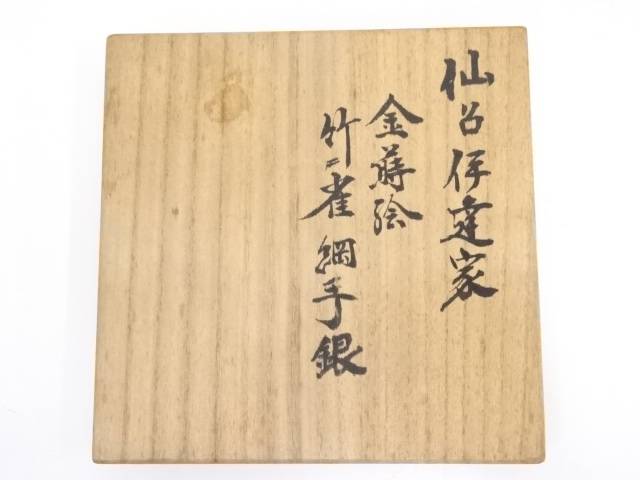 仙台伊達家
金蒔絵
竹ニ雀 綱手銀